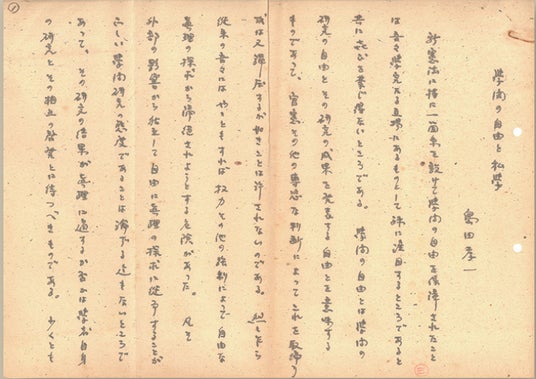 ①
学問の自由と私学
島田孝一
新憲法に特に一箇条を設けて学問の自由を保障されたこと
は吾々学究たる立場にあるものとして殊に注目するところであると
共に喜びを禁じ得ないところである。学問の自由とは学問の
研究の自由とその研究の成果を発表する自由とを意味する
ものであつて、官憲その他の専恣な判断によつてこれを取締り
或は又弾圧するが如きことは許されないのである。然しながら
従来の吾々にはややともすれば权力その他の強制によつて自由な
真理の探求から帰徳されようとする危険があつた。凡そ
外部の影響から独立して自由に真理の探求に従事することが
正しい学問研究の態度であることは論ずる迄もないところで
あつて、その研究の結果が真理に適するか否かは学者自身
の研究とその独立の啓発とに待つべきものである。少くとも